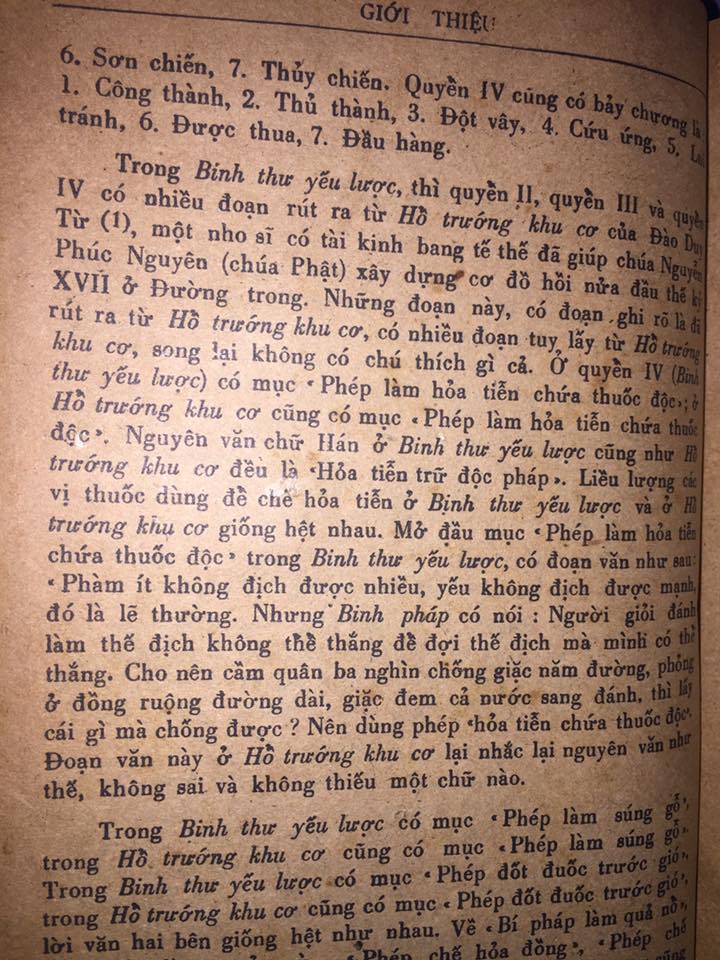 GIỚI THIỆU
6. Sơn chiến, 7. Thủy chiến. Quyền IV cũng có bảy chương là
1. Công thành, 2. Thủ thành, 3. Đột vây, 4. Cứu ứng, 5.
tránh, 6. Được thua, 7. Đầu hàng.
Trong Binh thư yếu lược, thì quyền II, quyền III và quyền
IV có nhiều đoạn rút ra từ Hồ trướng khu cơ của Đào Duy
Từ (1), một nho sĩ có tài kinh bang tế thế đã giúp chúa Nguyễn
Phúc Nguyên (chúa Phật) xây dựng cơ đồ hồi nửa đầu thế kỷ
XVII ở Đường trong. Những đoạn này, có đoạn ghi rõ là đã
rút ra từ Hồ trướng khu cơ, có nhiều đoạn tuy lấy từ Hồ trướng
khu cơ, song lại không có chú thích gì cả. Ở quyền IV (Binh
thư yếu lược) có mục «Phép làm hỏa tiễn chứa thuốc độc»; ở
Hồ trướng khu cơ cũng có mục «Phép làm hỏa tiễn chứa thuốc
độc». Nguyên văn chữ Hán ở Binh thư yếu lược cũng như Hồ
trướng khu cơ đều là «Hỏa tiễn trữ độc pháp». Liều lượng các
vị thuốc dùng để chế hỏa tiễn ở Binh thư yếu lược và ở Hồ
trướng khu cơ giống hệt nhau. Mở đầu mục «Phép làm hỏa tiễn
chứa thuốc độc» trong Binh thư yếu lược, có đoạn văn như sau:
«Phàm ít không địch được nhiều, yếu không địch được mạnh,
đó là lẽ thường. Nhưng Binh pháp có nói : Người giỏi đánh
làm thế địch không thể thắng để đợi thế địch mà mình có thể
thắng. Cho nên cầm quân ba nghìn chống giặc năm đường, phòng
ở đồng ruộng đường dài, giặc đem cả nước sang đánh, thì lấy
cái gì mà chống được ? Nên dùng phép «hỏa tiễn chứa thuốc độc».
Đoạn văn này ở Hồ trướng khu cơ lại nhắc lại nguyên văn như
thế, không sai và không thiếu một chữ nào.
Trong Binh thư yếu lược có mục «Phép làm súng gỗ»,
trong Hồ trướng khu cơ cũng có mục «Phép làm súng gỗ».
Trong Binh thư yếu lược có mục «Phép đốt đuốc trước gió»,
trong Hồ trướng khu cơ cũng có mục «Phép đốt đuốc trước gió»,
lời văn hai bên giống hệt như nhau. Về «Bí pháp làm quả nổ»,
«Phép chế hỏa đồng», «Phép chế